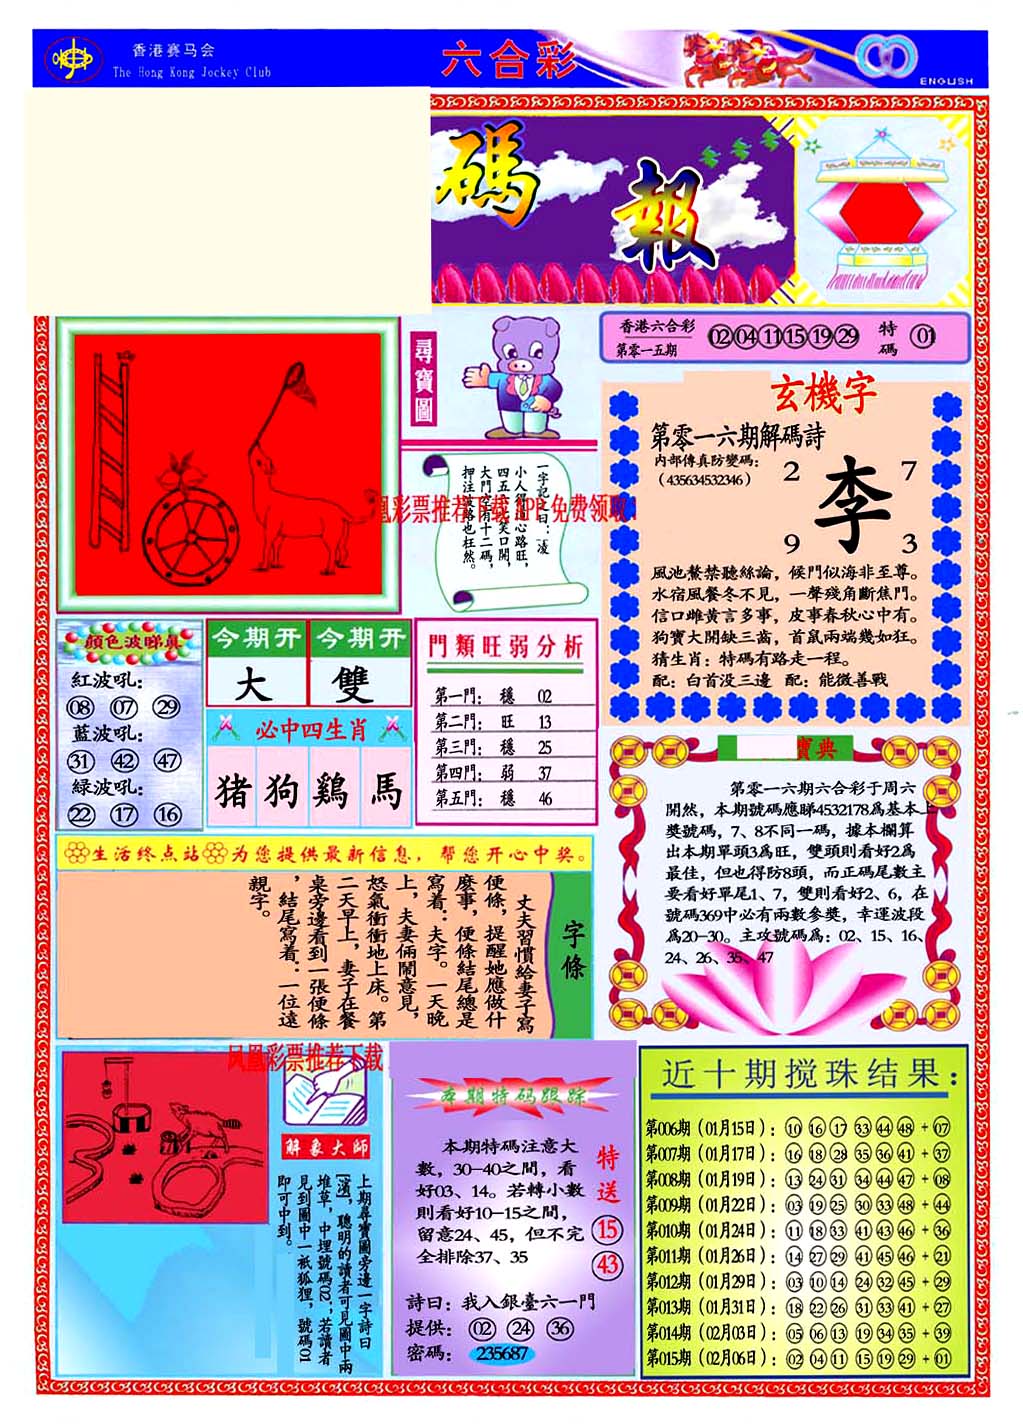 香港赛马会
The Hong Kong Jockey Club
六合彩
ENGLISH
碼報
尋寶圖
香港六合彩
第零一五期
02 04 11 15 19 29
特碼
01
玄機字
第零一六期解碼詩
内部傳真防變碼：
（435634532346）
2 7
李
9 3
風池鰲禁聽絲論，候門似海非至尊。
水宿風餐冬不見，一聲殘角斷焦門。
信口雌黄言多事，皮事春秋心中有。
狗寶大開缺三齒，首鼠兩端幾如狂。
猜生肖：特碼有路走一程。
配：白首没三邊 配：能微善戰
一字記之曰：凌
大門空有十二碼，
押注波路也枉然。
凰彩票推荐下载APP免费领取
顔色波睇真
紅波吼：
08 07 29
藍波吼：
31 42 47
緑波吼：
22 17 16
今期开 今期开
大 雙
必中四生肖
猪 狗 鷄 馬
門類旺弱分析
第一門： 穩 02
第二門： 旺 13
第三門： 穩 25
第四門： 弱 37
第五門： 穩 46
寶典
第零一六期六合彩于周六
開然，本期號碼應睇4532178爲基本上
獎號碼，7、8不同一碼，據本欄算
出本期單頭3爲旺，雙頭則看好2爲
最佳，但也得防8頭，而正碼尾數主
要看好單尾1、7，雙則看好2、6，在
號碼369中必有兩數參獎，幸運波段
爲20-30。主攻號碼爲：02、15、16、
24、26、35、47
生活终点站 为您提供最新信息，帮您开心中奖。
字條
丈夫習慣給妻子寫
便條，提醒她應做什
麽事，便條結尾總是
寫着：夫字。一天晚
上，夫妻倆鬧意見，
怒氣衝衝地上床。第
二天早上，妻子在餐
桌旁邊看到一張便條
，結尾寫着：一位遠
親字。
凤凰彩票推荐下载
解象大師
上期尋寶圖旁邊一字詩曰
，聰明的讀者可見圖中兩
堆草，中埋號碼02；若讀者
見到圖中一衹狐狸，號碼01
即可中到。
本期特码跟踪
本期特碼注意大
數，30-40之間，看
好03、14。若轉小數
則看好10-15之間，
留意24、45，但不完
全排除37、35
特送
15
43
詩曰：我入銀臺六一門
提供： 02 24 36
密碼： 235687
近十期搅珠结果：
第006期（01月15日）：10 16 17 33 44 48 + 07
第007期（01月17日）：16 18 28 35 36 41 + 37
第008期（01月19日）：13 24 31 34 44 47 + 08
第009期（01月22日）：03 19 25 30 33 48 + 44
第010期（01月24日）：11 18 33 41 43 46 + 36
第011期（01月26日）：14 27 29 41 45 46 + 21
第012期（01月29日）：03 10 14 24 32 45 + 29
第013期（01月31日）：18 22 26 31 33 41 + 27
第014期（02月03日）：05 06 13 19 34 35 + 39
第015期（02月06日）：02 04 11 15 19 29 + 01